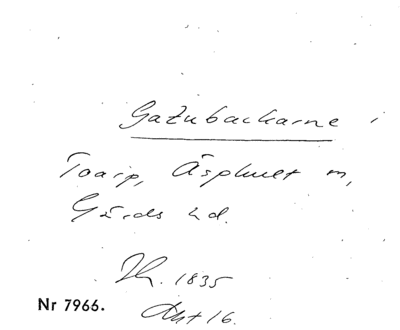 Gatubackarne i
Taarp, Äsphult m,
Gärds hd.
1835
Nr 7966.
Akt 16.